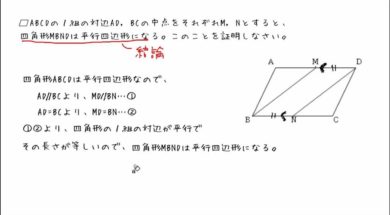 ▱ABCDの1組の対辺AD, BCの中点をそれぞれM, Nとすると、
四角形MBNDは平行四辺形になる。このことを証明しなさい。
結論
四角形ABCDは平行四辺形なので、
AD//BCより、MD//BN…①
AD=BCより、MD=BN…②
①②より、四角形の1組の対辺が平行で
その長さが等しいので、四角形MBNDは平行四辺形になる。
A M D
B N C